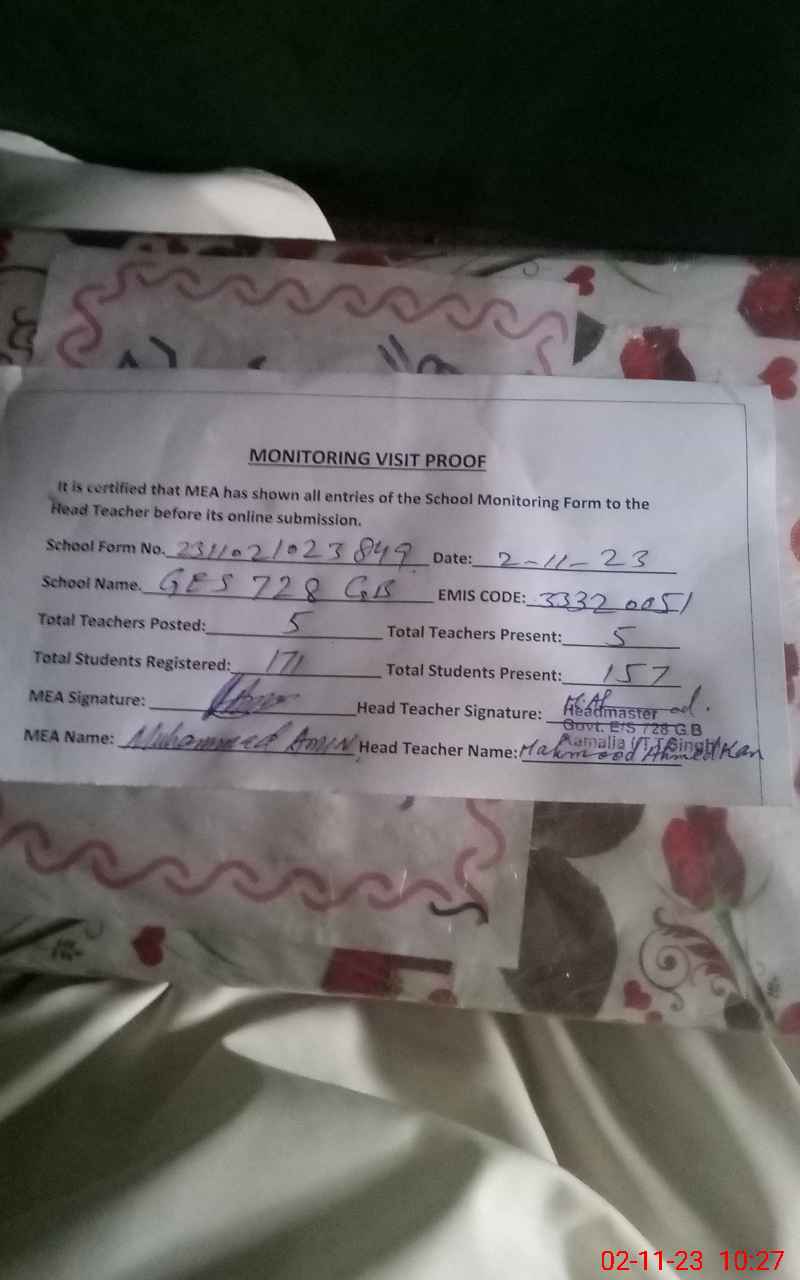 MONITORING VISIT PROOF
It is certified that MEA has shown all entries of the School Monitoring Form to the
Head Teacher before its online submission.
School Form No. 2311021023849 Date: 2-11-23
School Name. GES 728 GB EMIS CODE: 33320051
Total Teachers Posted: 5 Total Teachers Present: 5
Total Students Registered: 171 Total Students Present: 157
MEA Signature: Head Teacher Signature:
Headmaster
Govt. E/S 728 G.B
Kamalia (T.T.Singh)
MEA Name: Muhammed AMIN Head Teacher Name: Mahmood Ahmed
02-11-23 10:27